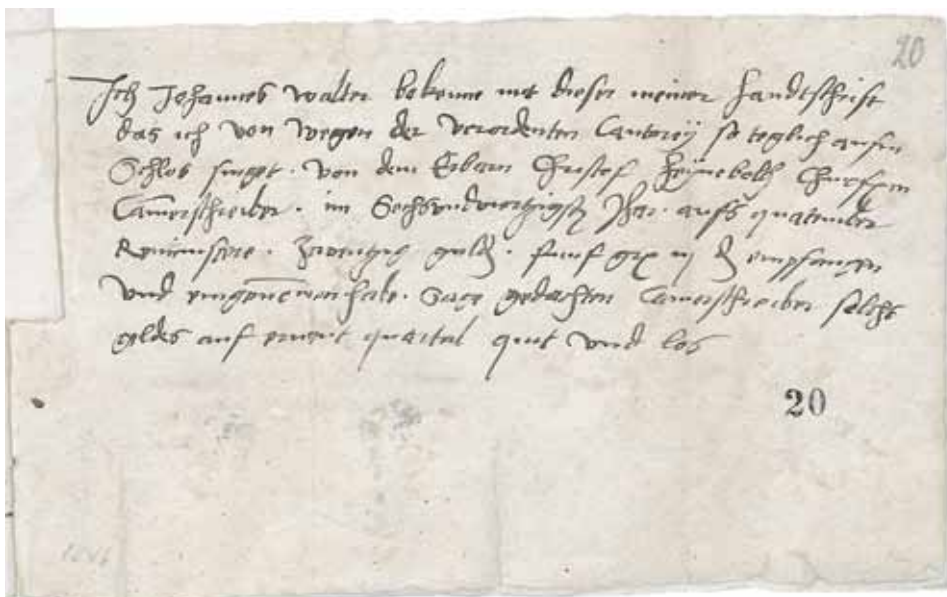 20
Ich Johannes Walter bekenne mit dieser meiner handtschrift
das ich von wegen der verordenten Cantorey so teglich aufm
Schlos singet. von dem Erbarn Cristof Heinebolh Churfsen
Camerschreiber. im Sechsundviertzigsten Jhar. aufs quatember
Reminiscere. Zwentzig guld. funf gr iij d empfangen
und eingenomen habe. Sage gedachten Camerschreiber solchs
geldes auf ernent quartal quit und los
20